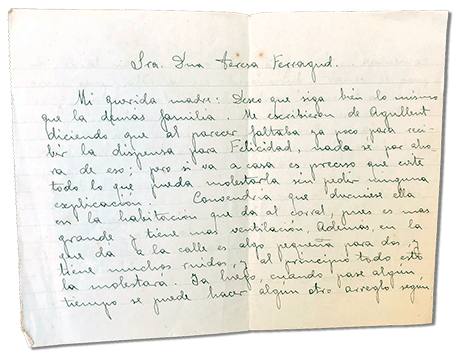 Sra. Dna Teresa Ferragud.
Mi querida madre: Deseo que siga bien lo mismo
que la demas familia. Me escribieron de Agullent
diciendo que al parecer faltaba ya poco para reci-
bir la dispensa para Felicidad, nada se por aho-
ra de eso; pero si va a casa es preciso que evite
todo lo que pueda molestarla sin pedir ninguna
explicación. Convendria que durmiese ella
en la habitación que da al corral, pues es mas
grande y tiene mas ventilación. Ademas, en la
que da a la calle es algo pequeña para dos, y
tiene muchos ruidos, y al principio todo esto
la molestara. Ya luego, cuando pase algún
tiempo se puede hacer algún otro arreglo según